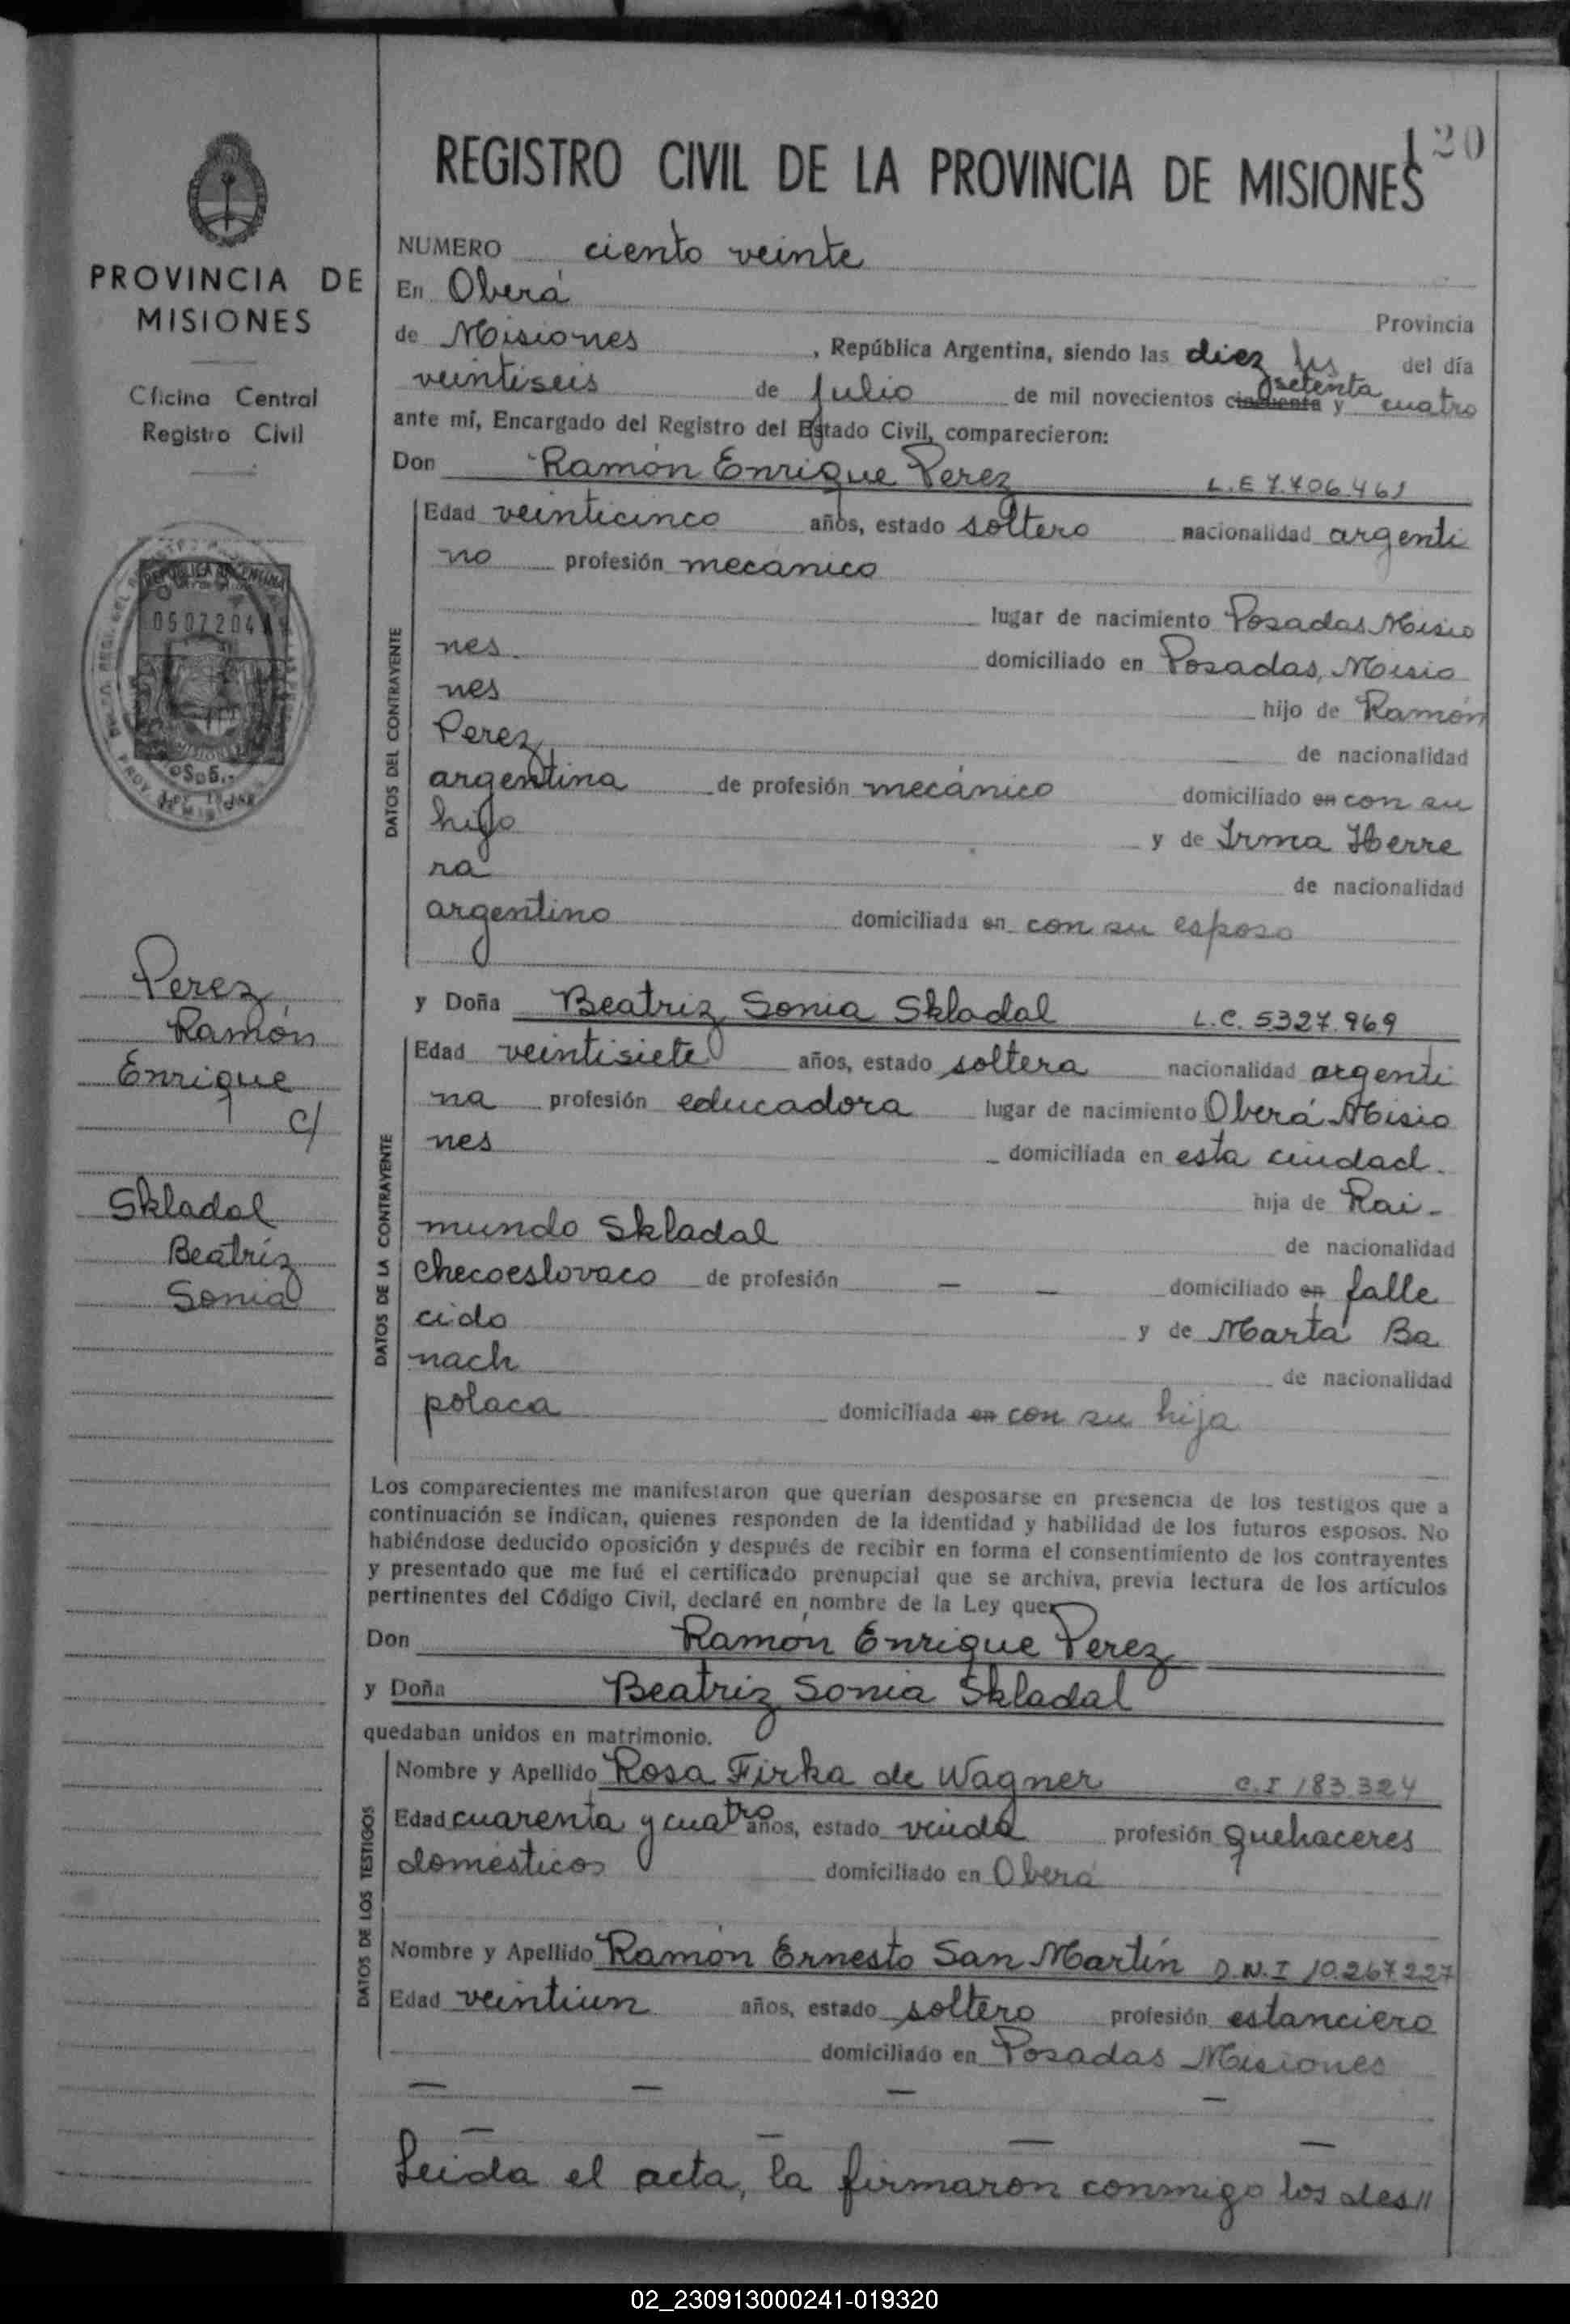 120
REGISTRO CIVIL DE LA PROVINCIA DE MISIONES
PROVINCIA DE
MISIONES
Oficina Central
Registro Civil
REPUBLICA ARGENTINA
Perez
Ramón
Enrique
c/
Skladal
Beatríz
Sonia
NUMERO ciento veinte
En Oberá
Provincia
de Misiones, República Argentina, siendo las diez hs del día
veintiseis de julio de mil novecientos cincuenta setenta y cuatro
ante mí, Encargado del Registro del Estado Civil, comparecieron:
Don Ramón Enrique Perez L.E 7.706.461
DATOS DEL CONTRAYENTE
Edad veinticinco años, estado soltero nacionalidad argenti
no profesión mecánico
lugar de nacimiento Posadas Misio
nes domiciliado en Posadas, Misio
nes hijo de Ramón
Perez de nacionalidad
argentina de profesión mecánico domiciliado en con su
hijo y de Irma Herre
ra de nacionalidad
argentino domiciliada en con su esposo
y Doña Beatriz Sonia Skladal L.C. 5327.969
DATOS DE LA CONTRAYENTE
Edad veintisiete años, estado soltera nacionalidad argenti
na profesión educadora lugar de nacimiento Oberá Misio
nes domiciliada en esta ciudad.
hija de Rai-
mundo Skladal de nacionalidad
checoeslovaco de profesión — — domiciliado en falle
cido y de Marta Ba
nach de nacionalidad
polaca domiciliada en con su hija
Los comparecientes me manifestaron que querían desposarse en presencia de los testigos que a
continuación se indican, quienes responden de la identidad y habilidad de los futuros esposos. No
habiéndose deducido oposición y después de recibir en forma el consentimiento de los contrayentes
y presentado que me fué el certificado prenupcial que se archiva, previa lectura de los artículos
pertinentes del Código Civil, declaré en nombre de la Ley que:
Don Ramón Enrique Perez
y Doña Beatriz Sonia Skladal
quedaban unidos en matrimonio.
DATOS DE LOS TESTIGOS
Nombre y Apellido Rosa Firka de Wagner C.I 183.324
Edad cuarenta y cuatro años, estado viuda profesión quehaceres
domésticos domiciliado en Oberá
Nombre y Apellido Ramón Ernesto San Martín D.N.I 10.267.227
Edad veintiun años, estado soltero profesión estanciero
domiciliado en Posadas Misiones
— — — —
— — — —
Leida el acta, la firmaron conmigo los des//
02_230913000241-019320